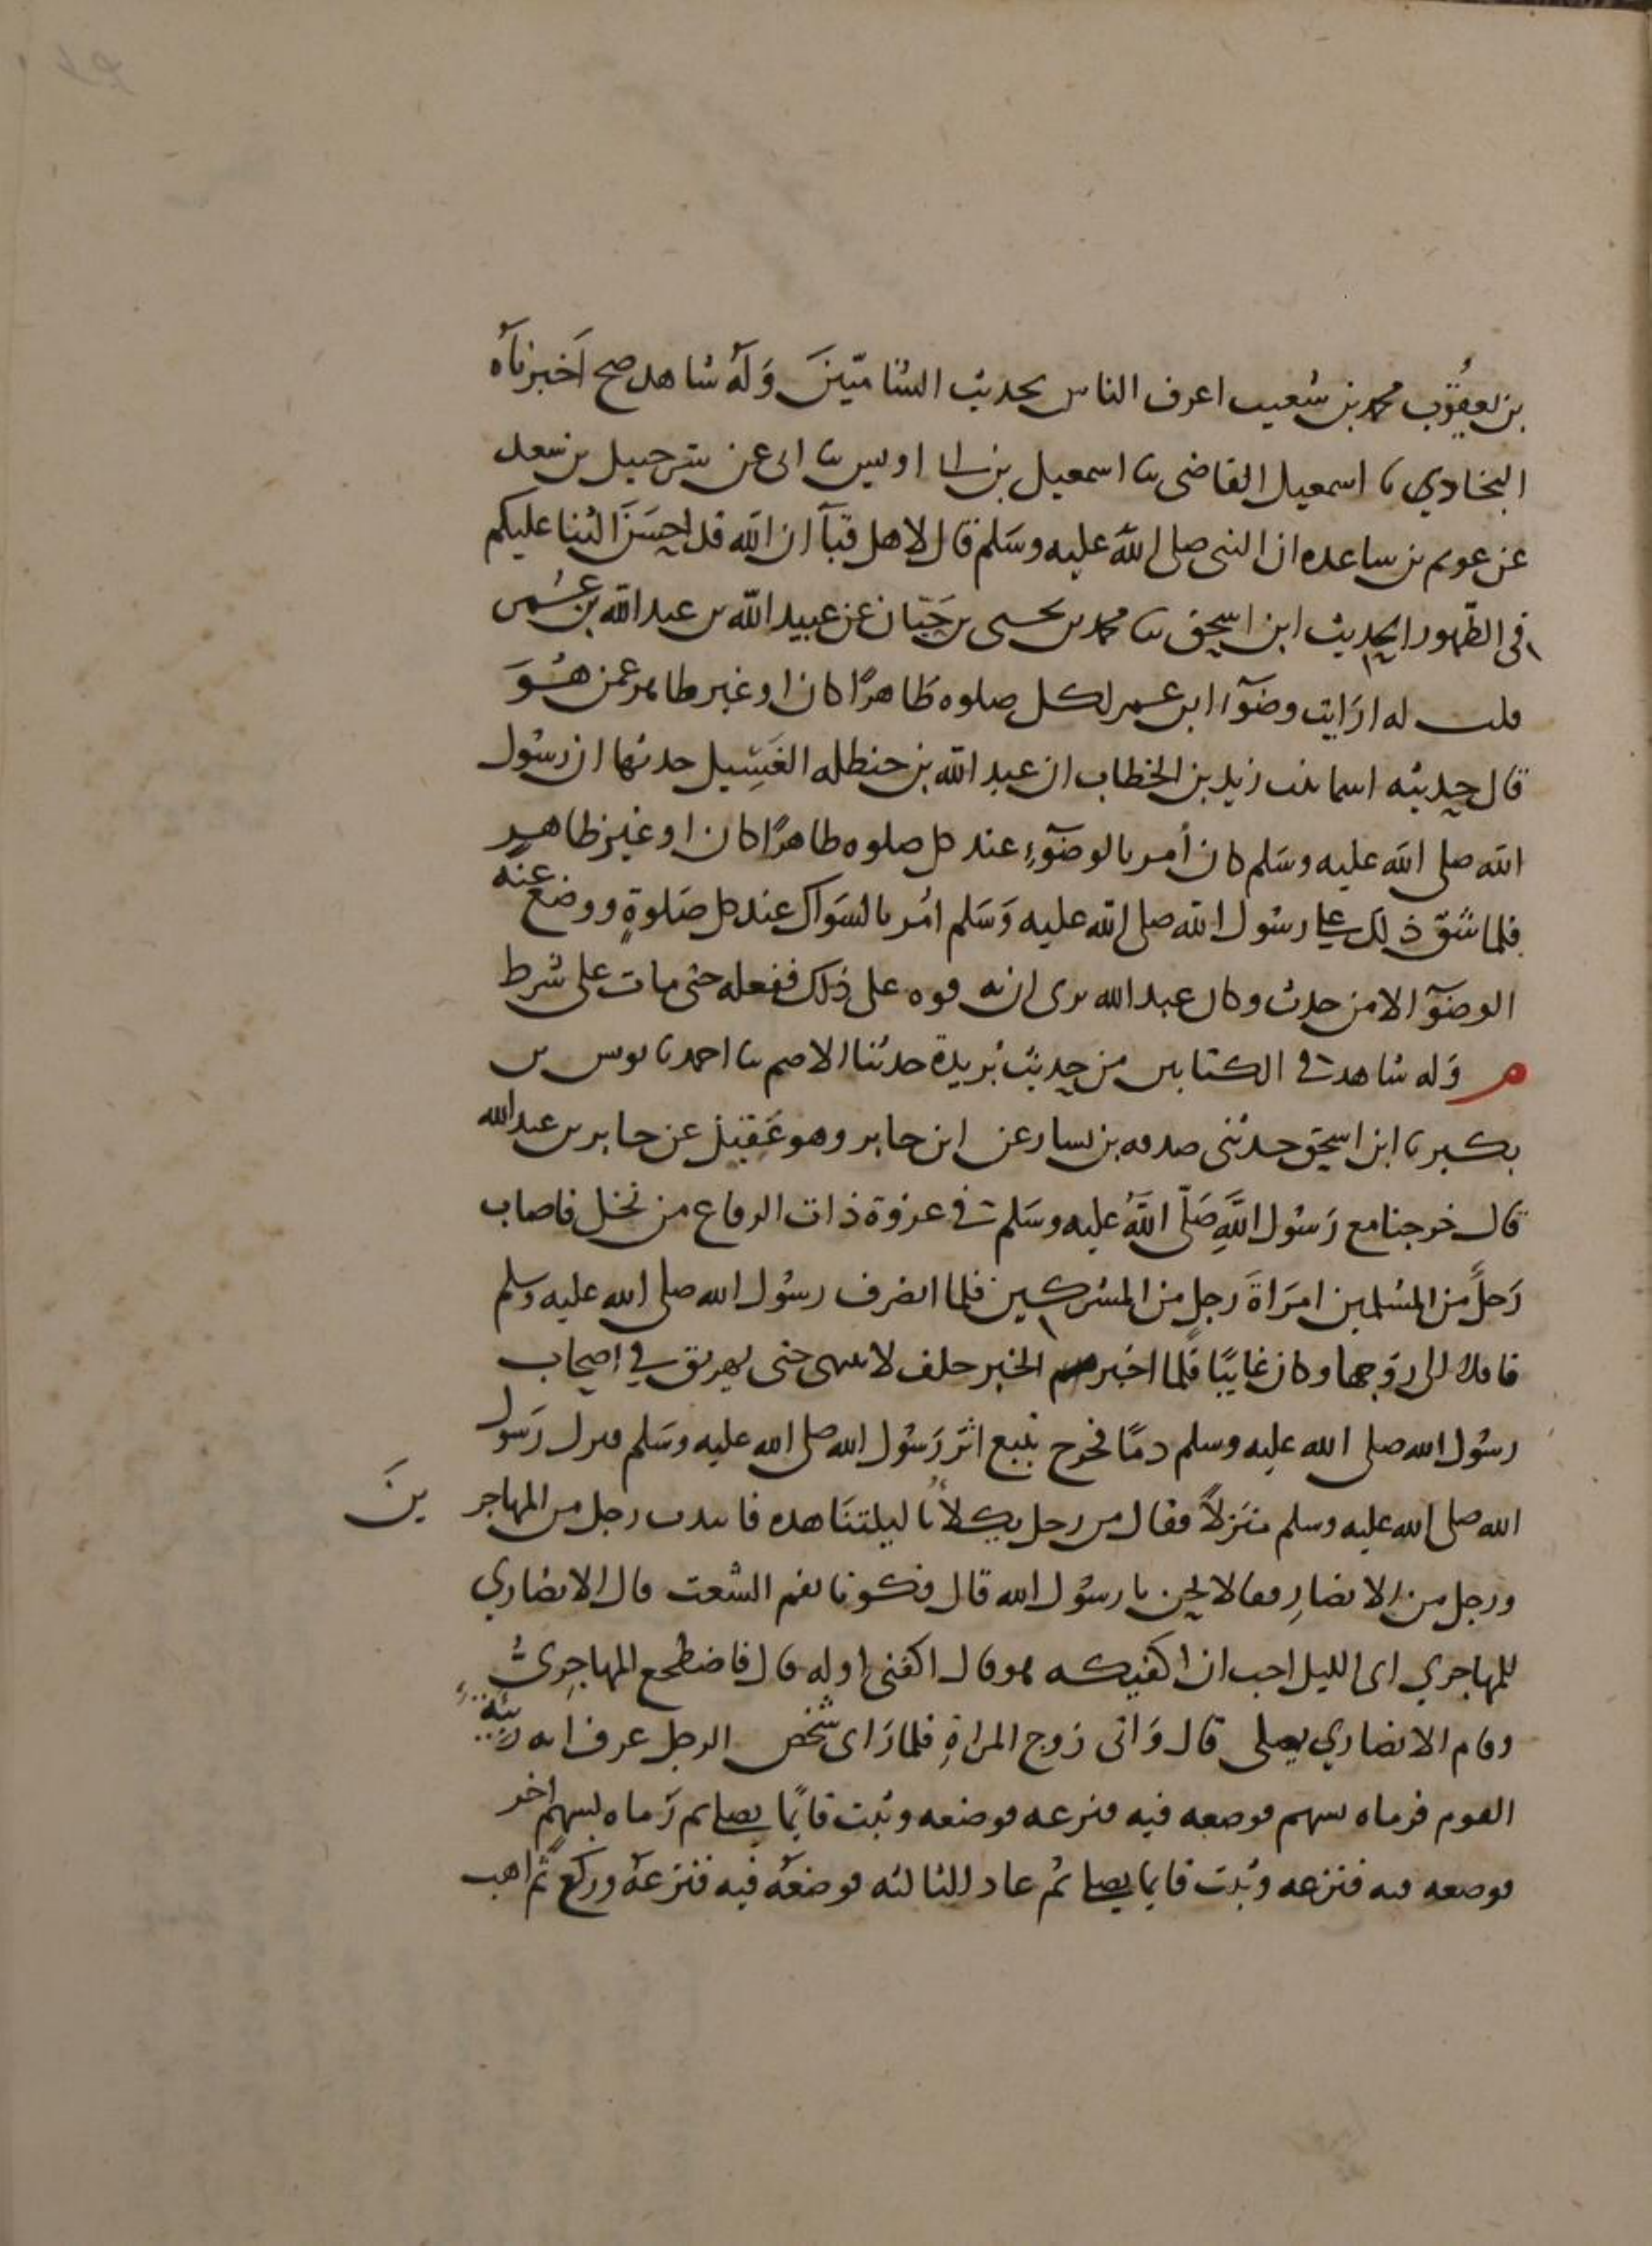 بن يعقوب محمد بن شعيب اعرف الناس بحديث الشاميّينَ وَلَهُ شاهد صح أخبرناه
البخاري نا اسمعيل القاضي ثنا اسمعيل بن ابي اويس ثنا ابي عن شرحبيل بن سعد
عن عويم بن ساعده ان النبي صلى الله عليه وسَلم قال لاهل قبآ ان الله قد احسَنَ الثنا عليكم
في الطّهور الحديث ابن اسحق ثنا محمد بن يحيى بن حَبّان عن عبيد الله بن عبد الله بن عُمر
قلت له ارَايت وضوٓا ابن عمر لكل صلوه طَاهرًا كان او غير طاهر عمن هُوَ
قال حدثته اسما بنت زيد بن الخطاب ان عبد الله بن حنظله الغَسِيل حدثها ان رسُول
الله صلى الله عليه وسَلم كان أُمر بالوضوٓءِ عند كل صلوه طاهرًا كان او غير ظاهر
فلما شقّ ذلك على رسُول الله صلى الله عليه وَسَلم امُر بالسَواك عند كل صَلوةٍ ووضع عنه
الوضوٓ الا من حدث وكان عبد الله يرى ان به قوه على ذلك ففعله حتى مات على شرط
م وَله شاهد في الكتابين من حديث بُريدة حدثنا الاصم ثنا احمد نا يونس بن
بكير نا ابن اسحق حدثني صدقه بن يسار عن ابن جابر وهو عَقيْل عن جابر بن عبد الله
قال خرجنا مع رَسُول اللَّهِ صَلّى اللَّهُ عليه وسَلم في غزوة ذات الرقاع من نخل فاصاب
رَجلٌ من المسُلمين امرَاةَ رَجلٍ من المشركين فلما انصَرف رسُول الله صلى الله عليه وسلم
قافلا اتى زوَجها وكان غايبًا فلَما اخبر الخبر حلف لا ينتهى حتى يهريق في اصحاب
رسُول الله صلى الله عليه وسلم دمًا فخرج يتبع اثر رَسُول الله صلى الله عليه وسَلم فنزل رَسول
الله صلى الله عليه وسلم منَزلاً فقال من رجل يكلأُنا ليلتنَا هذه فانتدب رجل من المهاجرينَ
ورجل من الانصَارِ فقالا نحن يا رسُول الله قال فكونا بفم الشعب قال الانصَاري
للمهاجري اي الليل احب ان اكفيكه قال اكفني اوله قال فاضطجع المهاجِريُّ
وقام الانصَاري يصلى قال وَاتى زَوج المراةِ فلما رَاى شخص الرجل عرف انه ربيئة
القوم فرماه بسهم فوضعه فيه فنزعه فوضعه وثبت قايمًا يصلي ثم رَماه بسهم اخر
فوضعه فيه فنزعه وثبت قايما يصلي ثم عاد للثالثه فوضعَهُ فيه فنزعَهُ ورَكع ثم اهب